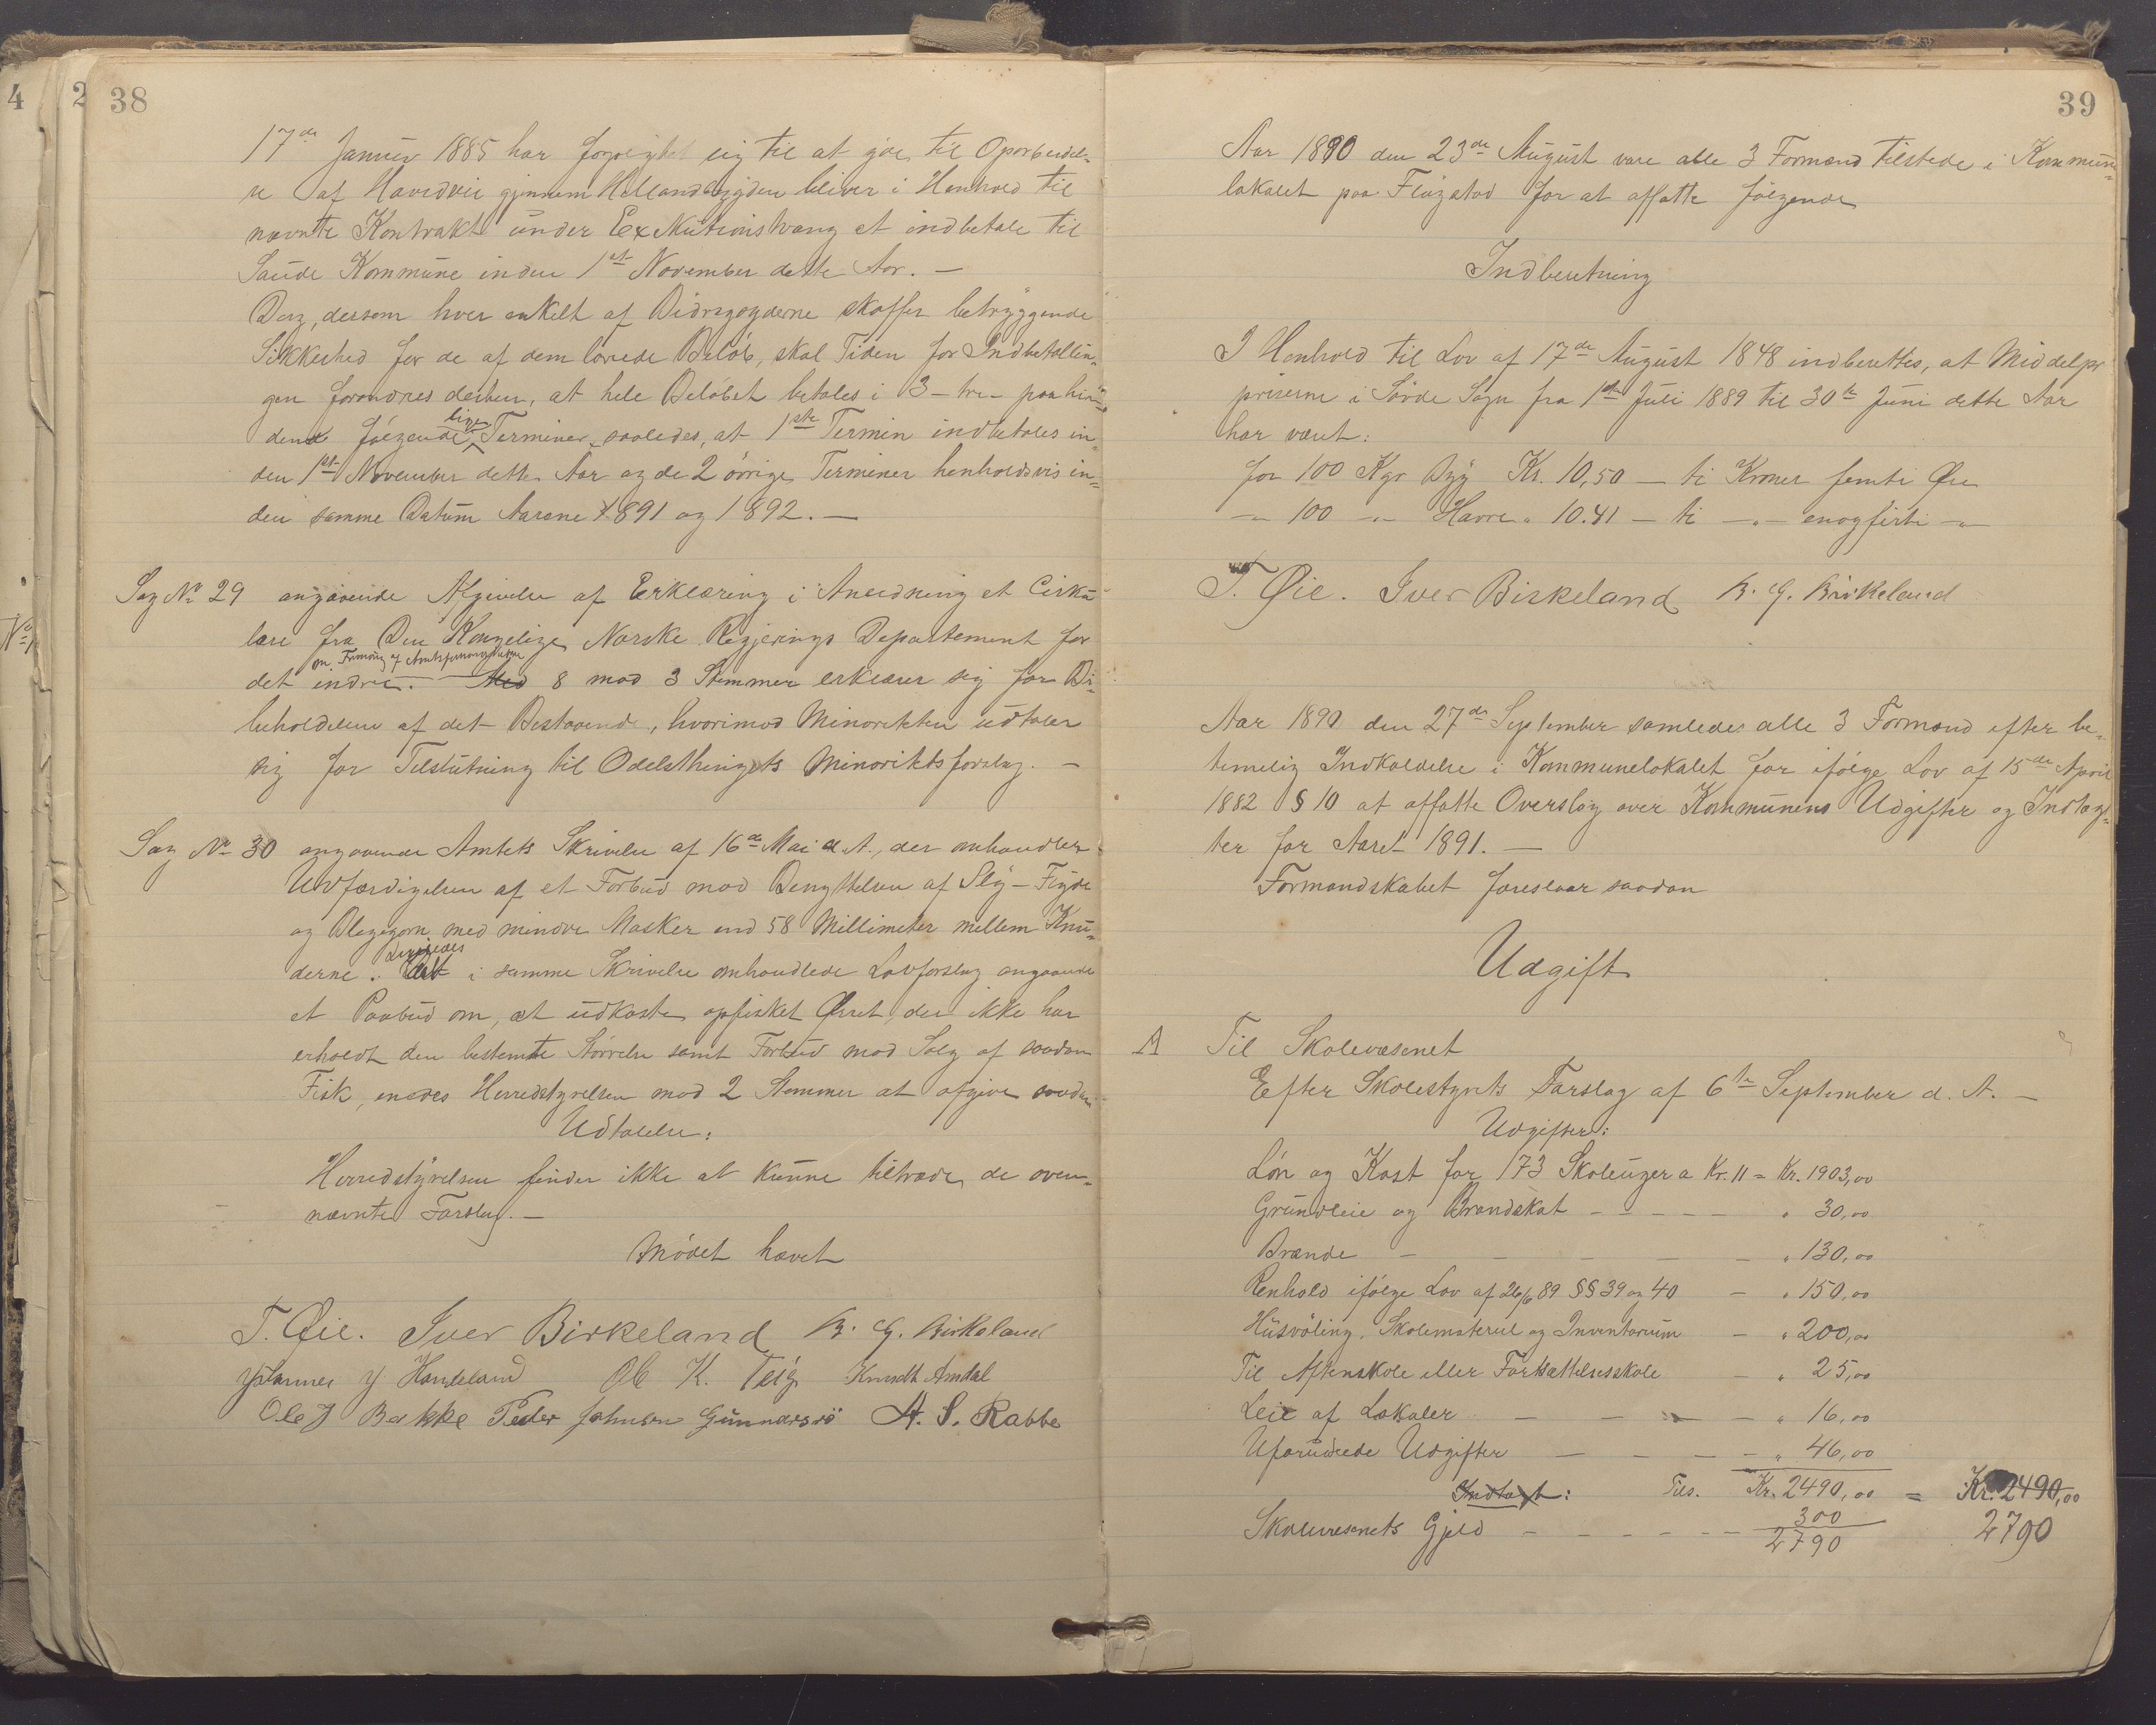 38
17de Januar 1885 har forpligtet sig til at yde til Oparbeidel-
se af Hovedvei gjennem Hellandsbygden bliver i Henhold til
nævnte Kontrakt under Exekutionstvang at indbetale til
Saude Kommune inden 1ste November dette Aar. —
Dog, dersom hver enkelt af Bidragyderne skaffer betryggende
Sikkerhed for de af dem lovede Beløb, skal Tiden for Indbetalin-
gen forandres derhen, at hele Beløbet betales i 3 - tre - paa hin-
anden følgende lige Terminer, saaledes, at 1ste Termin indbetales in-
den 1ste November dette Aar og de 2 övrige Terminer henholdsvis in-
den samme Datum Aarene 1891 og 1892. —
Sag No 29 angaaende Afgivelse af Erklæring i Anledning et Cirku
lære fra Den Kongelige Norske Regjerings Departement for
det indre om Formøg af Amtsformandskabet. Med 8 mod 3 Stemmer erklærer sig for Bi-
beholdelsen af det Bestaaende, hvorimod Minoriteten udtaler
sig for Tilslutning til Odelsthingets Minoritetsforslag. —
Sag No 30 angaaende Amtets Skrivelse af 16de Mai d. A., der omhandler
Udfærdigelsen af et Forbud mod Benyttelsen af Slÿ - Flyde
og Blegegarn med mindre Masker end 58 Millimeter mellem Knu-
derne. Ligeledes det i samme Skrivelse omhandlede Lovforslag angaaende
et Paabud om, at udkaste opfisket Ørret, der ikke har
erholdt den bestemte Størrelse samt Forbud mod Salg af saadan
Fisk, enedes Herredstyrelsen mod 2 Stemmer at afgive saadan
Udtalelse:
Herredstyrelsen finder ikke at kunne tiltræde de oven-
nævnte Forslag. —
Mödet hævet
T. Øie. Iver Birkeland B. G. Birkeland
Johannes J Handeland Ole K. Teig Knudt Amdal
Ole J Bakke Peder Johnsen Gunnarsrö A. S. Rabbe
39
Aar 1890 den 23de August vare alle 3 Formænd tilstede i Kommune-
lokalet paa Fløgstad for at affatte følgende
Indberetning
I Henhold til Lov af 17de August 1848 indberettes, at Middelpr
priserne i Søvde Sogn fra 1ste Juli 1889 til 30te Juni dette Aar
har været:
for 100 Kgr Byg Kr. 10,50 — ti Kroner femti Øre
—"— 100 —"— Havre " 10.41 — ti —"— enogførti —"—
T. Øie. Iver Birkeland B. G. Birkeland
Aar 1890 den 27de September samledes alle 3 Formænd efter be-
timelig Indkaldelse i Kommunelokalet for ifølge Lov af 15de April
1882 § 10 at affatte Overslag over Kommunens Udgifter og Indtæg-
ter for Aaret 1891. —
Formandskabet foreslaar saadan
Udgift
A Til Skolevæsenet
Efter Skolestyrets Forslag af 6te September d. A. —
Udgifter:
Løn og Kost for 173 Skoleuger a Kr. 11 = Kr. 1903,00
Grundleie og Brandskat - - - - - " 30,00
Brænde - - - - - " 130,00
Renhold ifølge Lov af 26/6 89 §§ 39 og 40 - " 150,00
Husvöling, Skolemateriel og Inventarium - " 200,00
Til Aftenskole eller Fortsættelsesskole - " 25,00
Leie af Lokaler - - - - " 16,00
Uforudseede Udgifter - - - - " 46,00
Indtægt: Tils. Kr. 2490,00 = Kr. 2490,00
Skolevæsenets Gjeld - - - - - - 300
2790 2790